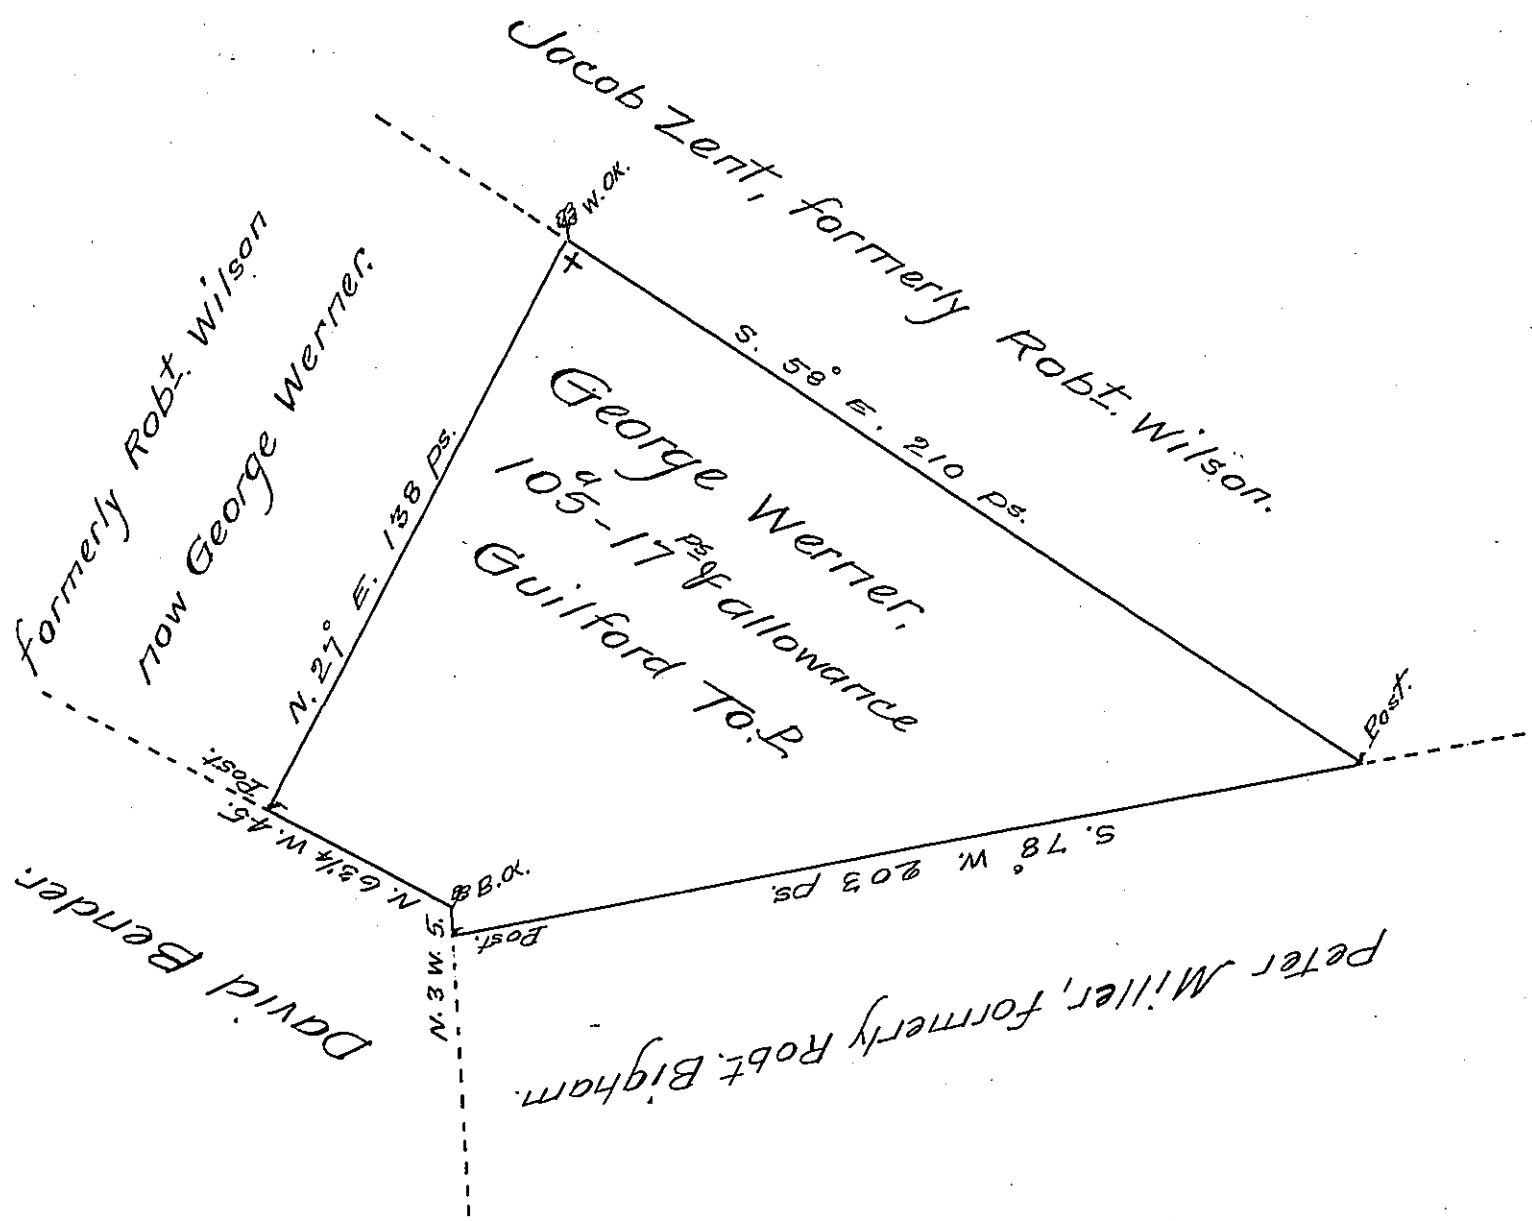 Jacob Zent, formerly Robt. Wilson.
W. OK.
formerly Robt. Wilson
now George Werner.
N. 27° E. 138 ps.
S. 58° E. 210 ps.
George Werner,
105a-17ps & allowance
Guilford To.p
Post.
Post.
N. 63¼ W. 45.
B.O.
N. 3 W. 5.
Post.
S. 78° W. 203 ps.
David Bender.
Peter Miller, formerly Robt. Bigham.